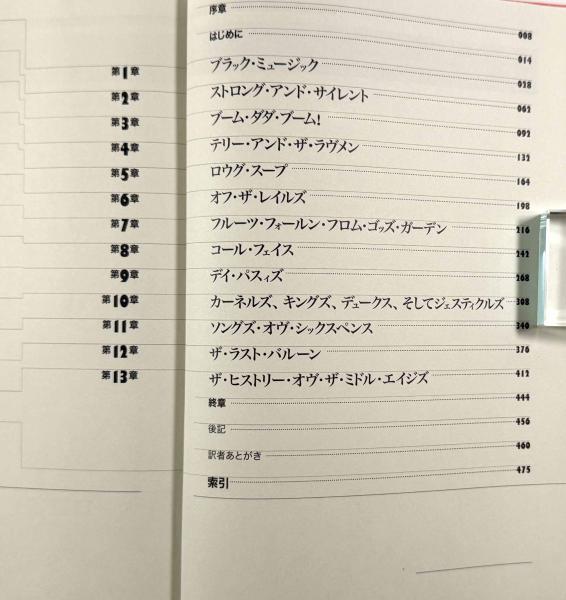 序章 008
はじめに 014
第1章 ブラック・ミュージック 028
第2章 ストロング・アンド・サイレント 062
第3章 ブーム・ダダ・ブーム! 092
第4章 テリー・アンド・ザ・ラヴメン 132
第5章 ロウグ・スープ 164
第6章 オフ・ザ・レイルズ 198
第7章 フルーツ・フォールン・フロム・ゴッズ・ガーデン 216
第8章 コール・フェイス 242
第9章 デイ・パスィズ 268
第10章 カーネルズ、キングズ、デュークス、そしてジェスティクルズ 308
第11章 ソングズ・オヴ・シックスペンス 340
第12章 ザ・ラスト・バルーン 376
第13章 ザ・ヒストリー・オヴ・ザ・ミドル・エイジズ 412
終章 444
後記 456
訳者あとがき 460
索引 475